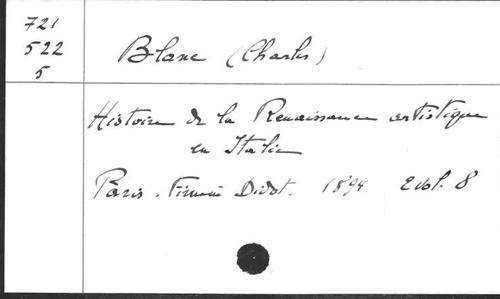 721
522
5
Blanc (Charles)
Histoire de la Renaissance artistique
en Italie
Paris. Firmin Didot. 1894 2 vol. 8